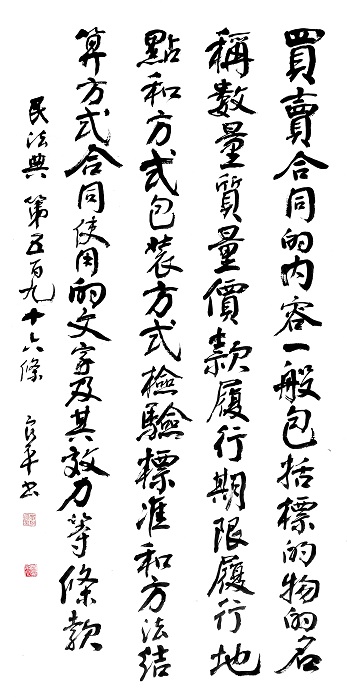 買賣合同的内容一般包括標的物的名
稱數量質量價款履行期限履行地
點和方式包装方式檢驗標准和方法結
算方式合同使用的文字及其效力等條款
民法典第五百九十六條 良平书